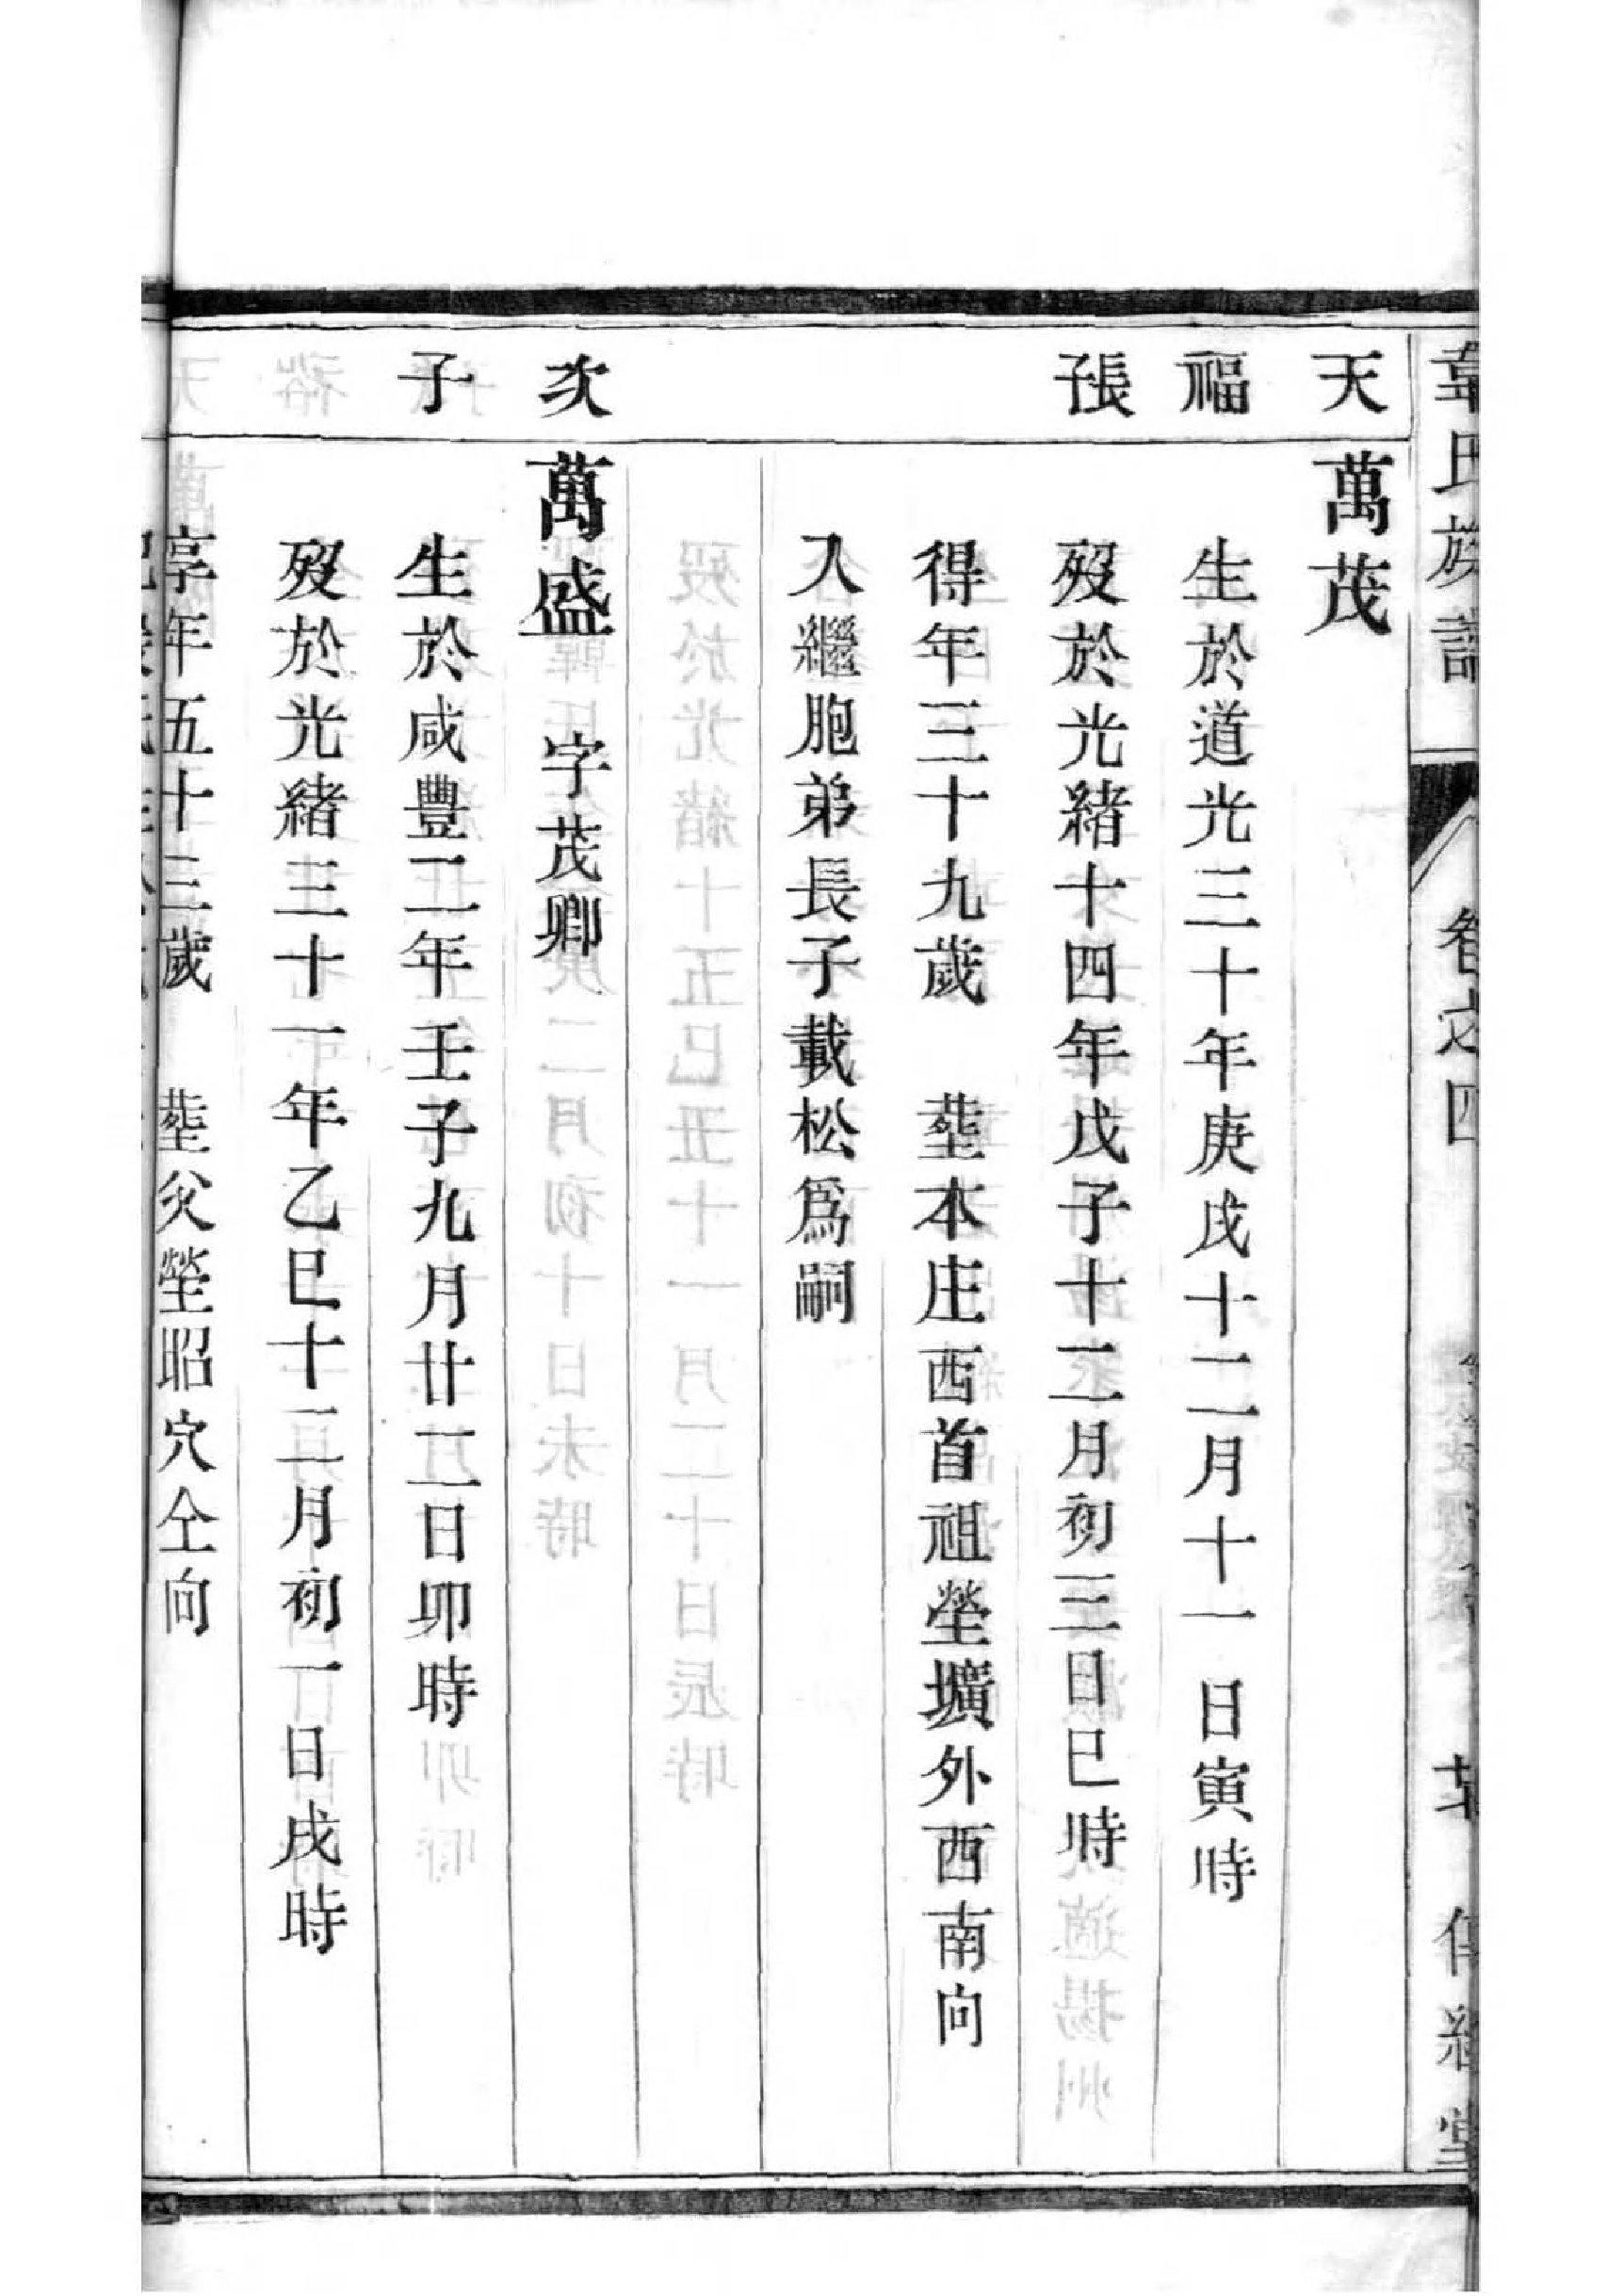 韋氏族譜 卷之四
天 萬茂
福 生於道光三十年庚戌十二月十一日寅時
長子 歿於光緒十四年戊子十二月初三日巳時
得年三十九歲 塟本庄西首祖塋壙外西南向
入繼胞弟長子載松爲嗣
次 萬盛 字茂卿
子 生於咸豐二年壬子九月廿二日卯時
歿於光緒三十一年乙巳十二月初一日戌時
享年五十三歲 塟父塋昭穴仝向